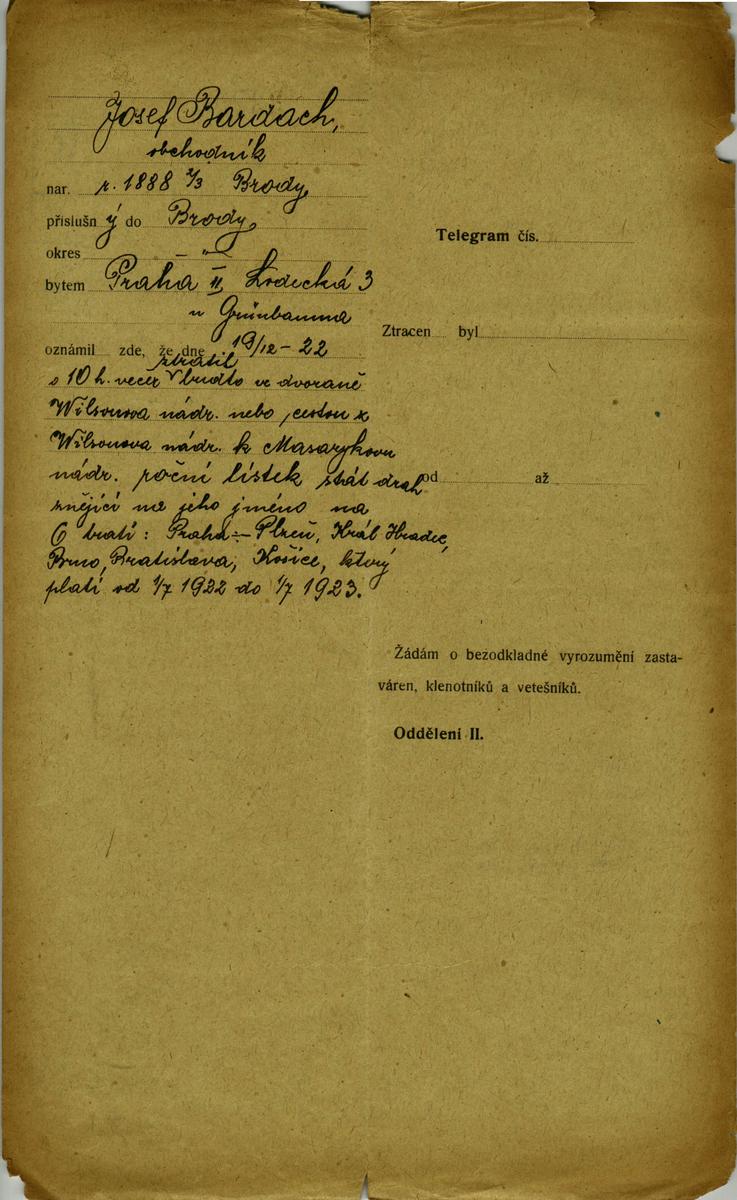 Josef Bardach,
obchodník
nar. r. 1888 2/3 Brody,
příslušný do Brody,
okres "
bytem Praha II, Lodecká 3
u Grünbauma
oznámil zde, že dne 19/12 - 22
ztratil
o 10 h. večer buďto ve dvoraně
Wilsonova nádr. nebo cestou z
Wilsonova nádr. k Masarykovu
nádr. roční lístek stát drah
znějící na jeho jméno na
6 tratí: Praha - Plzeň, Král Hradec,
Brno, Bratislava, Košice, který
platí od 1/7 1922 do 1/7 1923.
Telegram čís.
Ztracen byl
od až
Žádám o bezodkladné vyrozumění zasta-
váren, klenotníků a vetešníků.
Oddělení II.